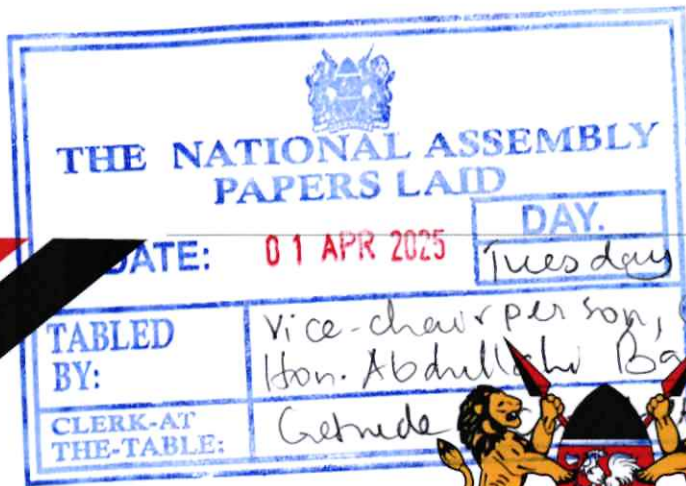 THE NATIONAL ASSEMBLY
PAPERS LAID
DATE: 01 APR 2025
DAY.
Tuesday
TABLED BY:
Vice-chairperson,
Hon. Abdullahi Ba
CLERK-AT THE-TABLE: